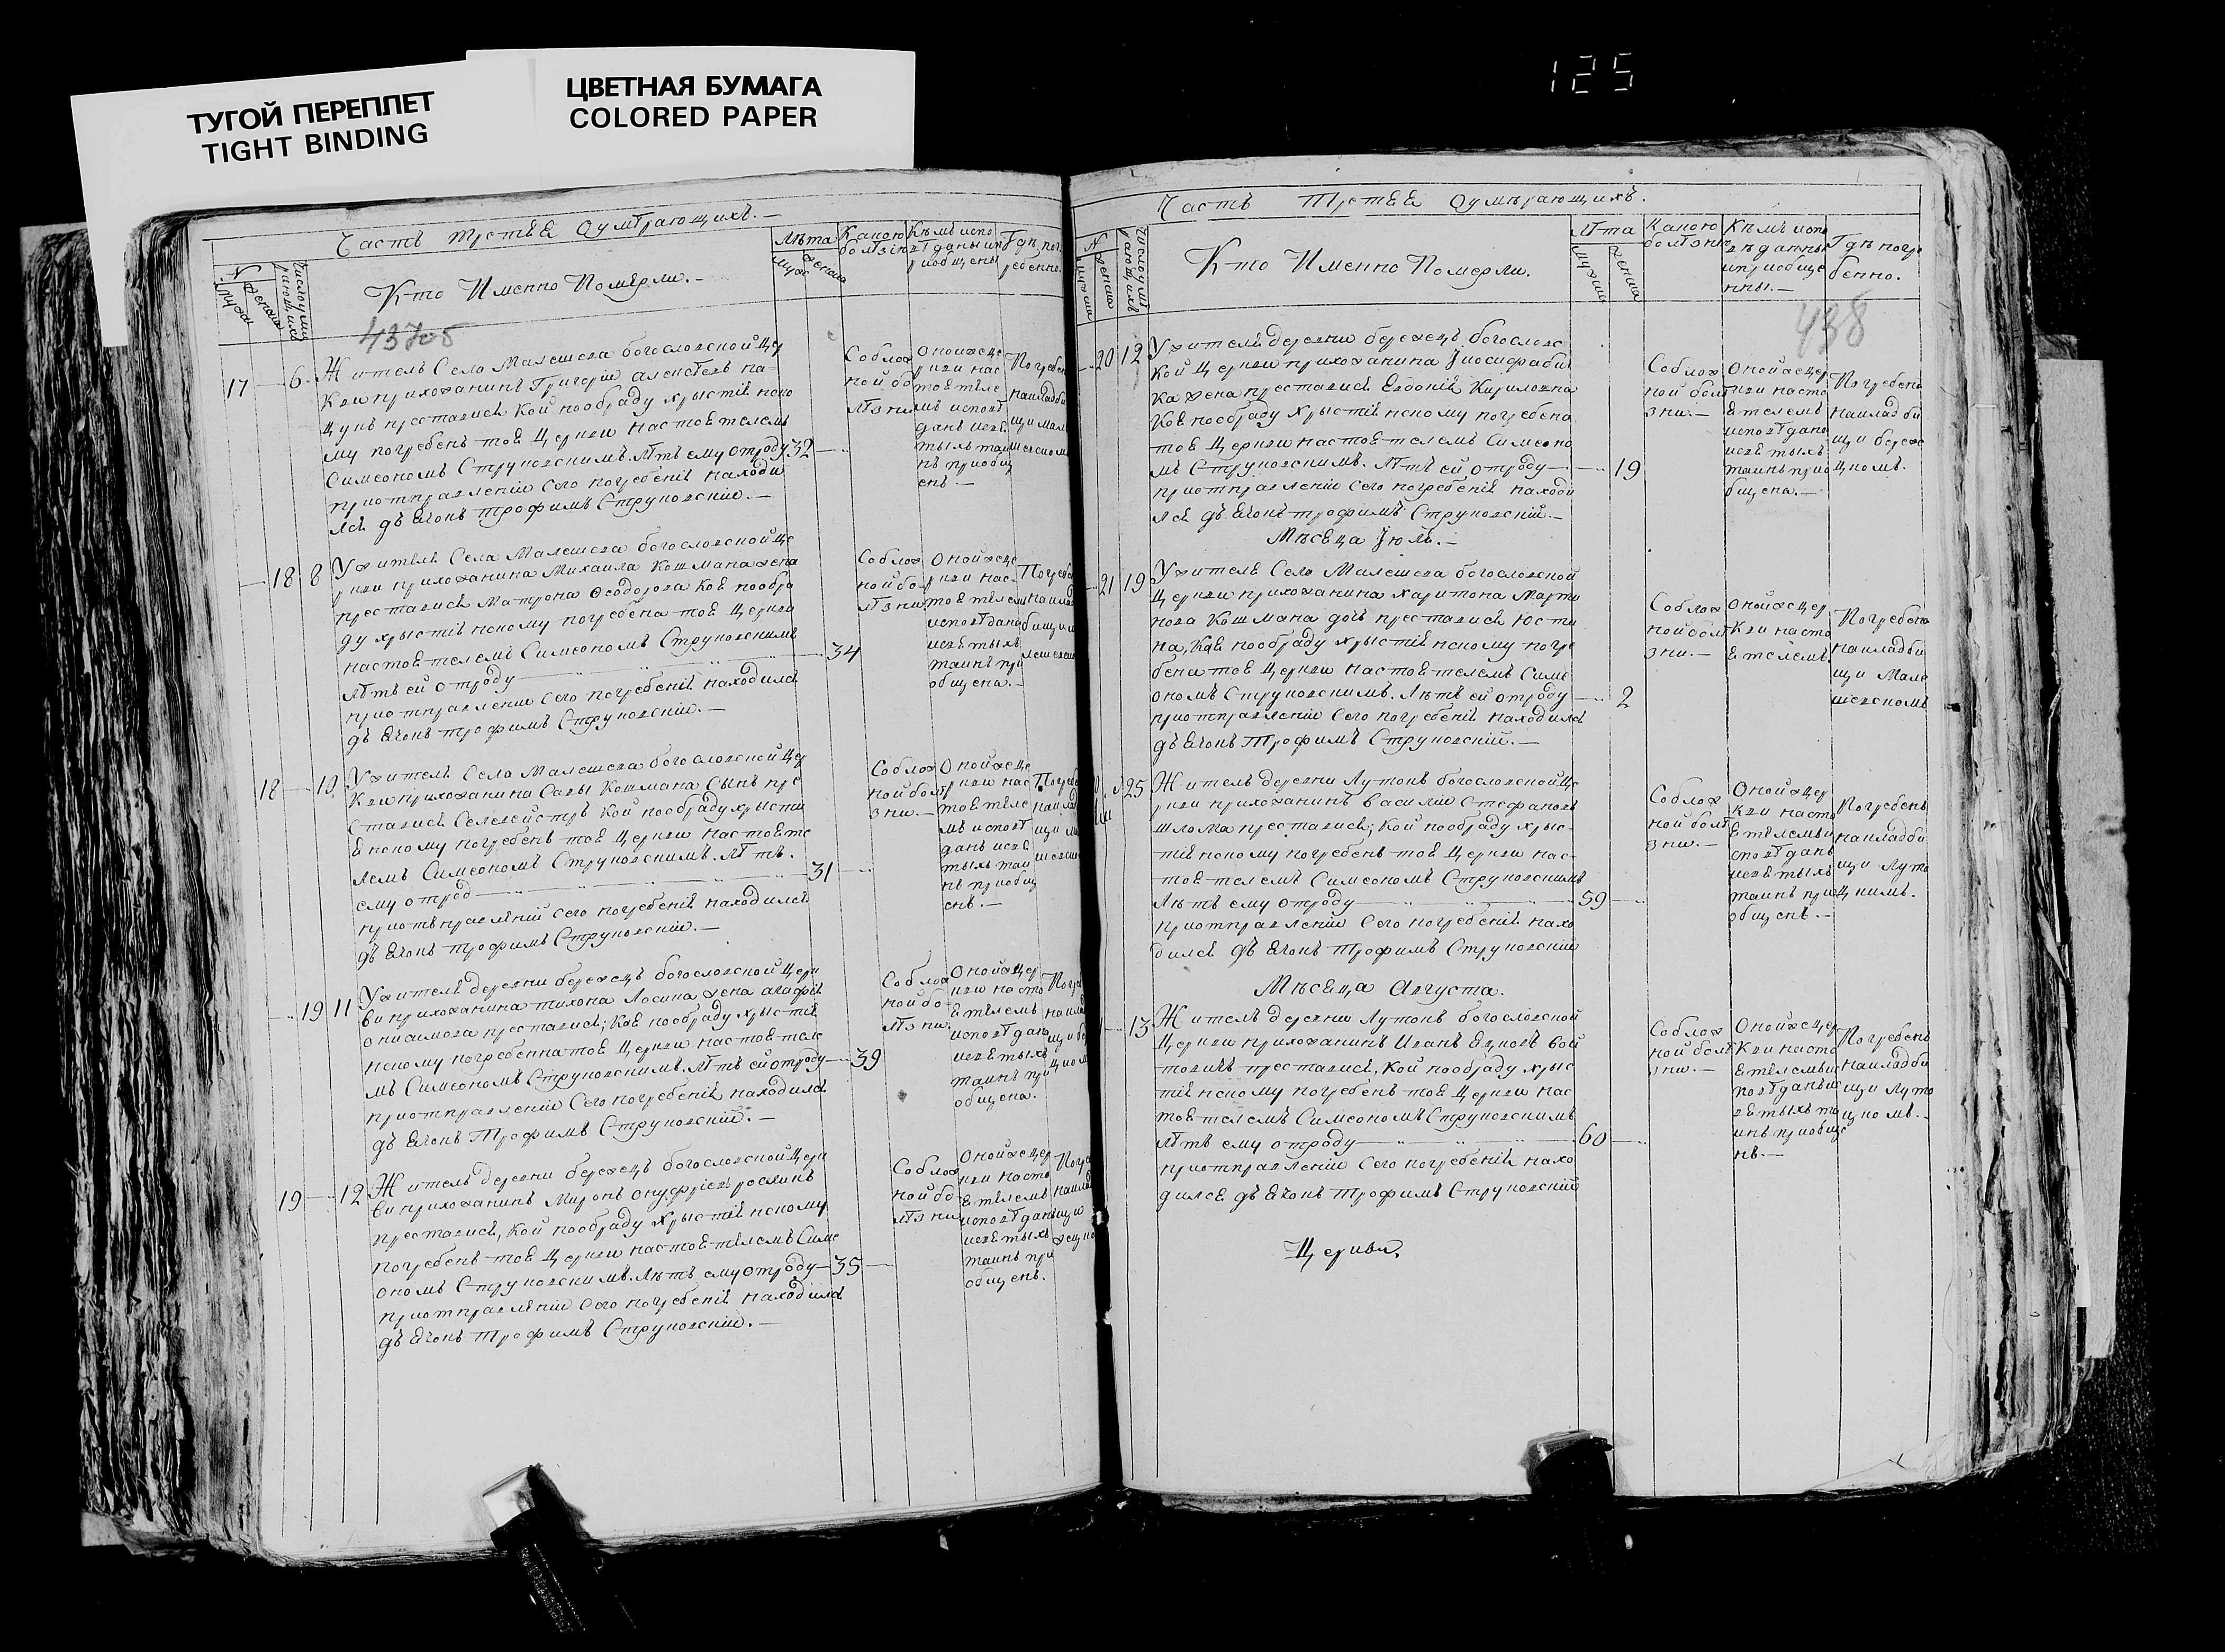 ТУГОЙ ПЕРЕПЛЕТ
TIGHT BINDING
ЦВЕТНАЯ БУМАГА
COLORED PAPER
125
Часть третяя оумѣрающихъ.—
№
Число умирающихъ
Кто Именно Помѣрли.—
Лѣта
Какою болѣзнію
Кѣмъ исповѣданы и приобщены
Гдѣ погребенно.
438
17 — 6
Житель Села Малешева богословской Цер
кви прихожанинъ Григорій Алексѣевъ
преставися кой пообраду хрыстіянско
му погребенъ тоя Церкви настоятелемъ
Симеономъ Струковскимъ. Лѣтъ ему отроду 32 —
приотправленіи Сего погребенія находи
лся дьячокъ трофимъ Струковскій.—
Соблож
ной бо
лѣзни
Онойже це
ркви нас
тоятеле
мъ исповѣ
данъ исвя
тыхъ таи
нъ приобщ
енъ.—
— 18 8
Ужителя Села Малешева богословской Це
ркви прихожанина Михаила Кошмана жена
преставися Матрона Феодорова Коя пообра
ду хрыстіянскому погребена тоя Церкви
настоятелемъ Симеономъ Струковскимъ
лѣтъ ей отроду — 34
приотправленіи Сего погребенія находился
дьячокъ трофимъ Струковскій.—
Соблож
ной бо
лѣзни
Онойже це
ркви нас
тоятелем
исповѣдана
исвятыхъ
таинъ при
общена.—
18 — 10
Ужителя Села Малешева богословской Цер
кви прихожанина Савы Кошмана Сынъ пре
ставися Селевейстръ Кой пообраду хрысті
янскому погребенъ тоя Церкви настояте
лемъ Симеономъ Струковскимъ. Лѣтъ.
ему отрод — 31 —
приотъправленіи Сего погребенія находился
дьячокъ трофимъ Струковскій.—
Соблож
ной болѣ
зни.—
Онойже це
ркви нас
тоятеле
мъ исповѣ
данъ исвя
тыхъ таи
нъ приобщ
енъ.—
— 19 11
Ужителя деревни бережецъ богословской Церк
ви прихожанина тихона Лосика жена агафія
онисимова преставися; Коя пообраду хрыстія
нскому погребенна тоя Церкви настояте
мъ Симеономъ Струковскимъ. Лѣтъ ей отроду — 39
приотправленіи Сего погребенія находился
дьячокъ Трофимъ Струковскій.—
Соблож
ной бо
лѣзни
Онойже цер
кви насто
ятелемъ
исповѣдана
исвятыхъ
таинъ при
общена.
19 — 12
Житель деревни бережецъ богословской Церк
ви прихожанинъ Миронъ онуфріевъ
преставися, Кой пообраду хрыстіянскому
погребенъ тоя Церкви настоятелемъ Симе
ономъ Струковскимъ. Лѣтъ ему отроду — 35 —
приотправленіи Сего погребенія находился
дьячокъ трофимъ Струковскій.—
Соблож
ной бо
лѣзни
Онойже цер
кви насто
ятелемъ
исповѣданъ
исвятыхъ
таинъ при
общенъ.
Часть третяя оумѣрающихъ.
№
Число умирающихъ
Кто Именно Померли.
Лѣта
Какою болѣзнію
Кѣмъ испо
вѣданны
иприобще
нны.—
Гдѣ погре
бенно.
438
— 20 12
Ужителя деревни бережецъ богословс
кой Церкви прихожанина Іиосифа
жена преставися Евдокія Кириловна
Коя пообраду хрыстіянскому погребена
тоя Церкви настоятелемъ Симеоно
мъ Струковскимъ. Лѣтъ ей отроду — 19
приотправленіи Сего погребенія находи
лся дьячокъ трофимъ Струковскій.—
Соблож
ной болѣ
зни.—
Онойже цер
кви насто
ятелемъ
исповѣдана
исвятыхъ
таинъ прио
бщена.—
Погребена
накладби
щи береже
цкомъ.
Мѣсяца Іюля.—
— 21 19
Ужителя Села Малешева богословской
Церкви прихожанина харитона Марти
нова Кошмана дочь преставися Юсти
на, Коя пообраду хрыстіянскому погре
бена тоя Церкви настоятелемъ Симе
ономъ Струковскимъ. Лѣтъ ей отроду — 2
приотправленіи Сего погребенія находился
дьячокъ Трофимъ Струковскій.—
Соблож
ной болѣ
зни.—
Онойже цер
кви насто
ятелемъ.
Погребена
накладби
щи Мале
шевскомъ
25
Житель деревни Лутокъ богословской Це
ркви прихожанинъ василій Стефановъ
шлома преставися; Кой пообраду хрыс
тіянскому погребенъ тоя Церкви нас
тоятелемъ Симеономъ Струковскимъ
Лѣтъ ему отроду — 59 —
приотправленіи Сего погребенія нахо
дился дьячокъ Трофимъ Струковскій
Соблож
ной болѣ
зни.—
Онойже цер
кви насто
ятелемъ и
сповѣданъ
исвятыхъ
таинъ при
общенъ.—
Погребенъ
накладби
щи Луто
цкимъ.
Мѣсяца Августа.
— 13
Житель деревни Лутокъ богословской
Церкви прихожанинъ Иванъ Вой
товичъ преставися, Кой пообраду хрыс
тіянскому погребенъ тоя Церкви нас
тоятелемъ Симеономъ Струковскимъ
лѣтъ ему отроду — 60 —
приотправленіи Сего погребенія нахо
дился дьячокъ трофимъ Струковскій
Соблож
ной болѣ
зни.—
Онойже цер
кви насто
ятелемъ ис
повѣданъ и
вятыхъ та
инъ приобще
нъ.—
Погребенъ
накладби
щи Луто
цкомъ.—
Церкви,